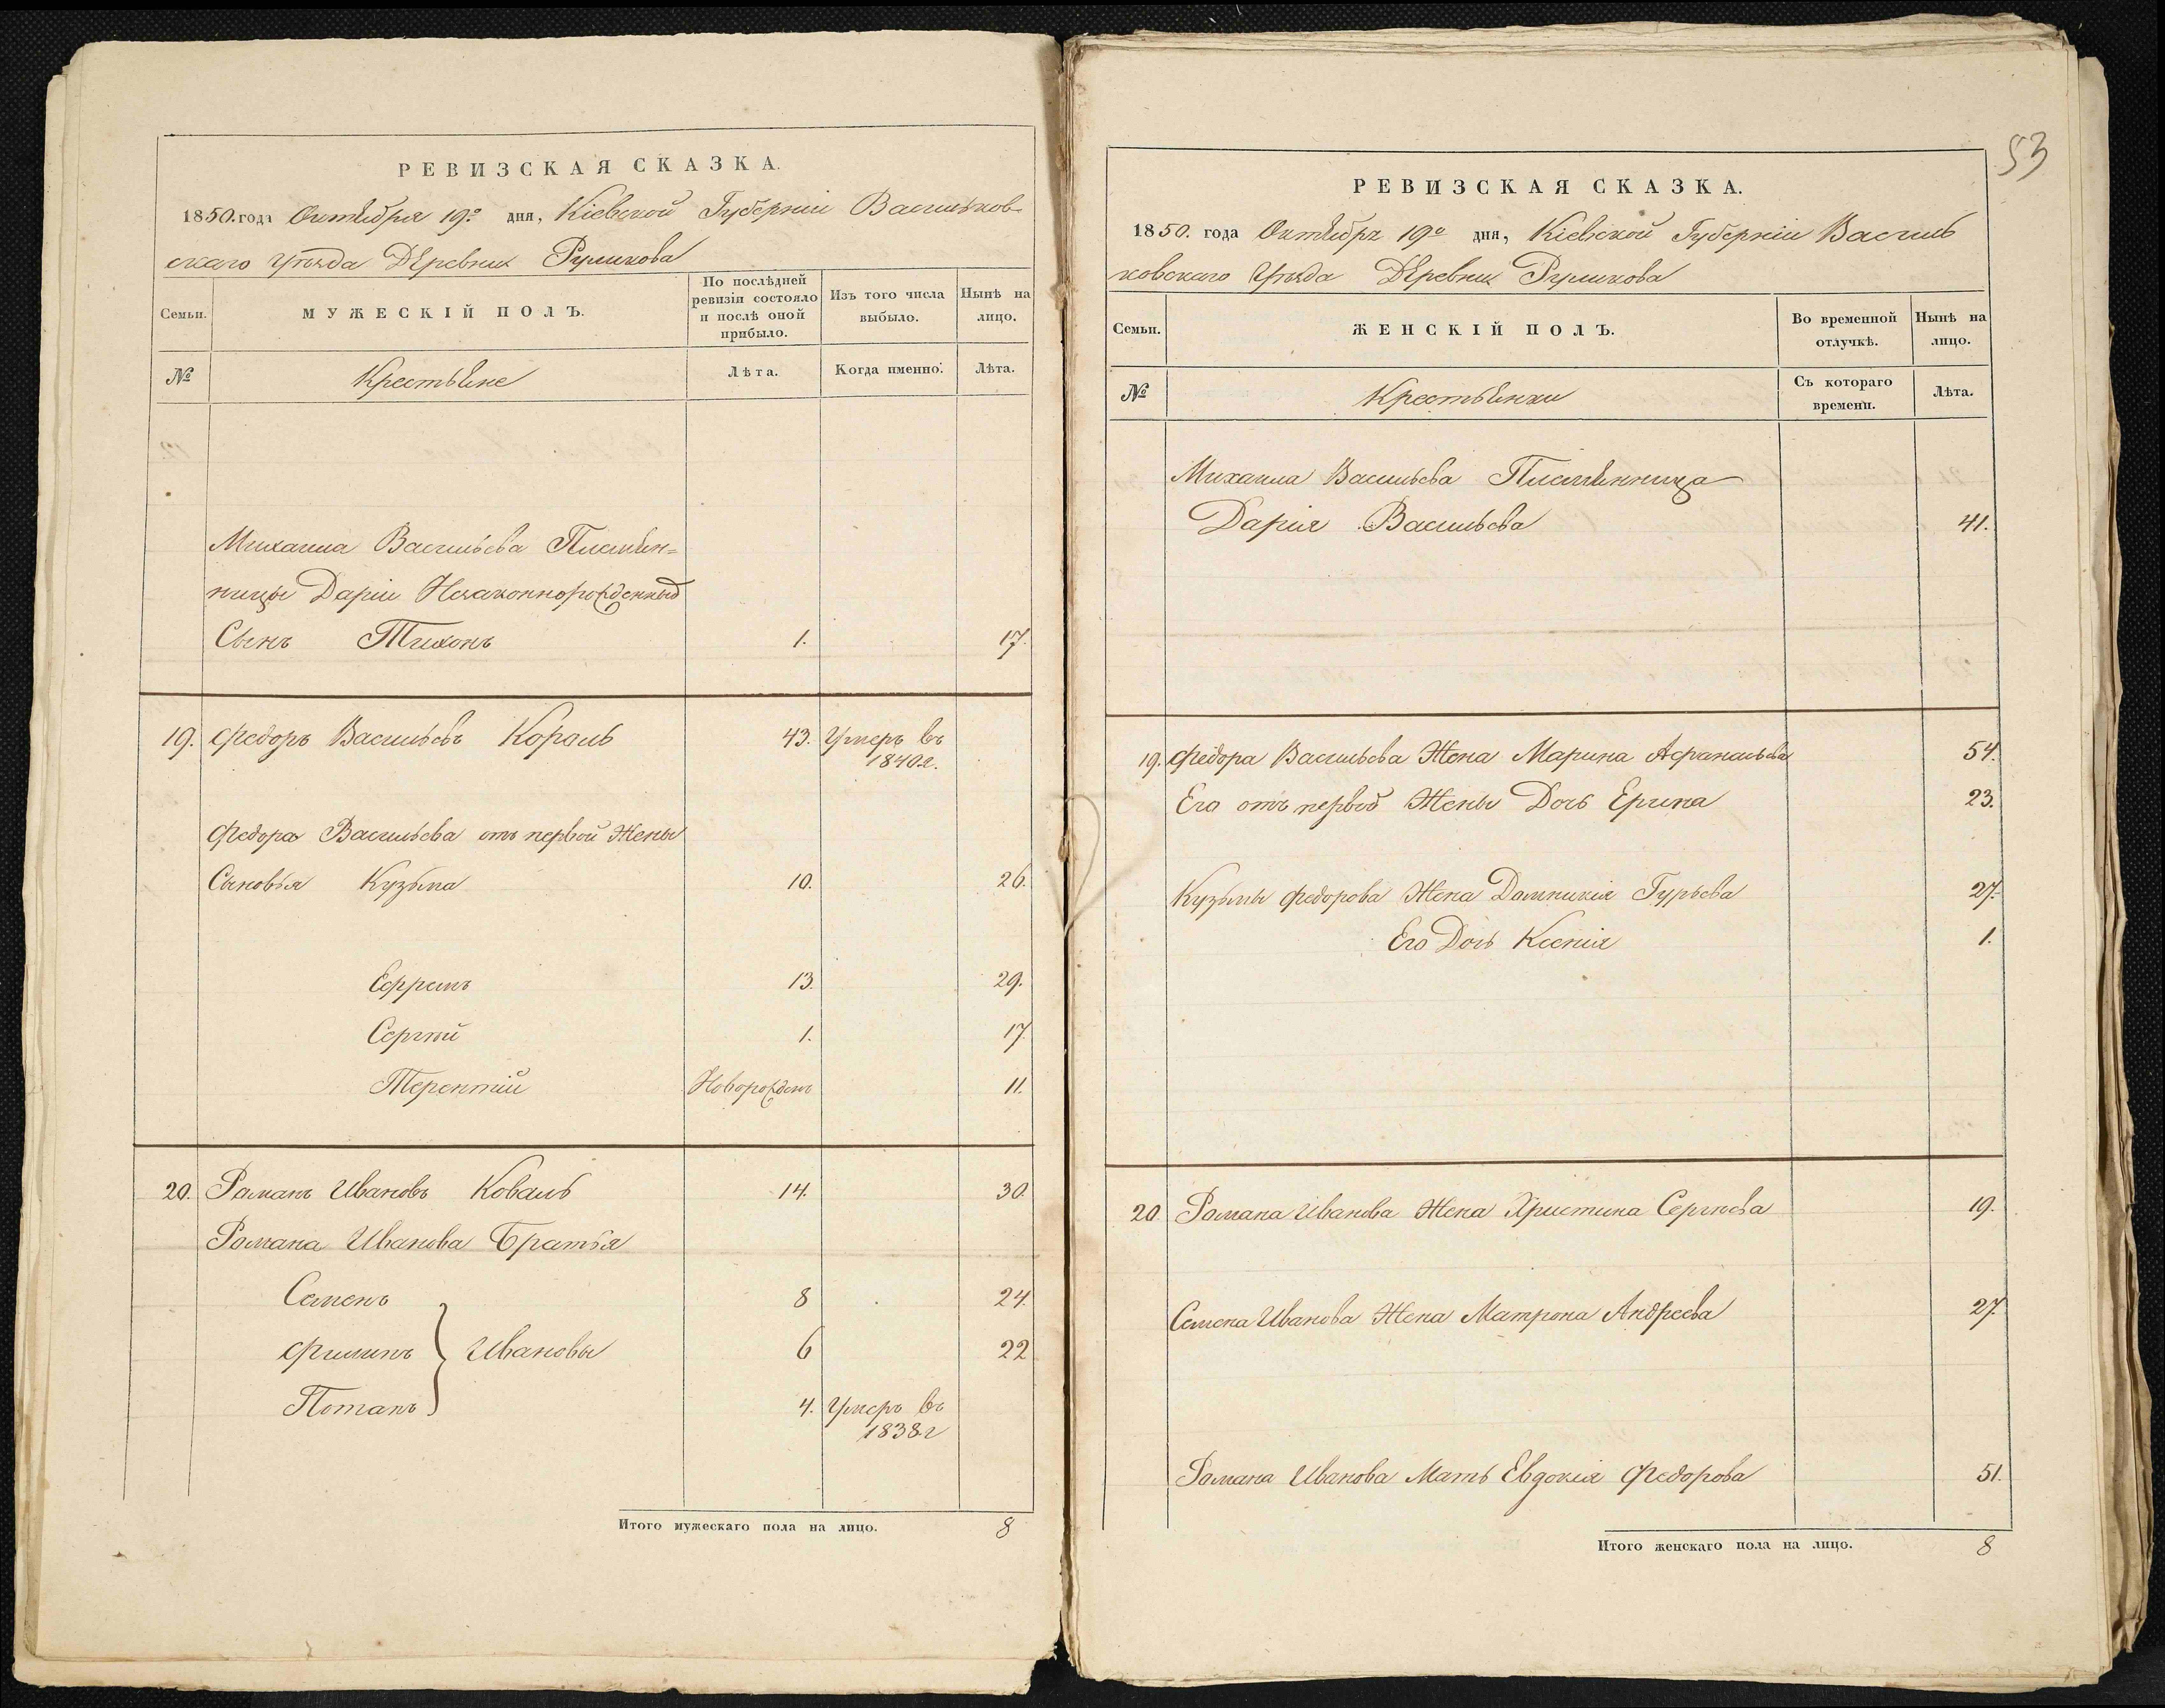 РЕВИЗСКАЯ СКАЗКА.
1850. года Октября 19го дня, Кіевской Губерніи Васильков-
скаго Уѣзда Деревни Руликова
Семьи.
МУЖЕСКІЙ ПОЛЪ.
По послѣдней ревизіи состояло и послѣ оной прибыло.
Изъ того числа выбыло.
Нынѣ на лицо.
№
Крестьяне
Лѣта.
Когда именно.
Лѣта.
Михаила Васильева Племян=
ницы Даріи Незаконнорожденный
Сынъ Тихонъ 1. 17.
19. Федоръ Васильевъ Король 43. Умеръ въ
1840 г.
Федора Васильева отъ первой Жены
Сыновья Кузьма 10. 26.
Ефремъ 13. 29.
Сергѣй 1. 17
Терентій Новорожденъ 11.
20. Романъ Ивановъ Коваль 14. 30.
Романа Иванова Братья
Семенъ 8 24.
Филипъ } Ивановы 6 22
Потапъ 4. Умеръ въ
1838 г
Итого мужескаго пола на лицо. 8
53
РЕВИЗСКАЯ СКАЗКА.
1850. года Октября 19го дня, Кіевской Губерніи Василь
ковскаго Уѣзда Деревни Руликова
Семьи.
ЖЕНСКІЙ ПОЛЪ.
Во временной отлучкѣ.
Нынѣ на лицо.
№
Крестьянки
Съ котораго времени.
Лѣта.
Михаила Васильева Племянница
Дарія Васильева 41.
19. Федора Васильева Жена Марина Афанасьева 54.
Его отъ первой Жены Дочь Ерина 23.
Кузьмы Федорова Жена Домникія Гурьева 27.
Его Дочь Ксенія 1.
20 Романа Иванова Жена Христина Сергѣева 19.
Семена Иванова Жена Матрона Андреева 27.
Романа Иванова Мать Евдокія Федорова 51.
Итого женскаго пола на лицо. 8